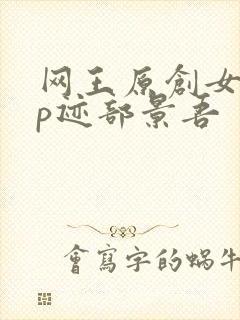 网王原創女
p迹部景吾
會寫字的蝸牛